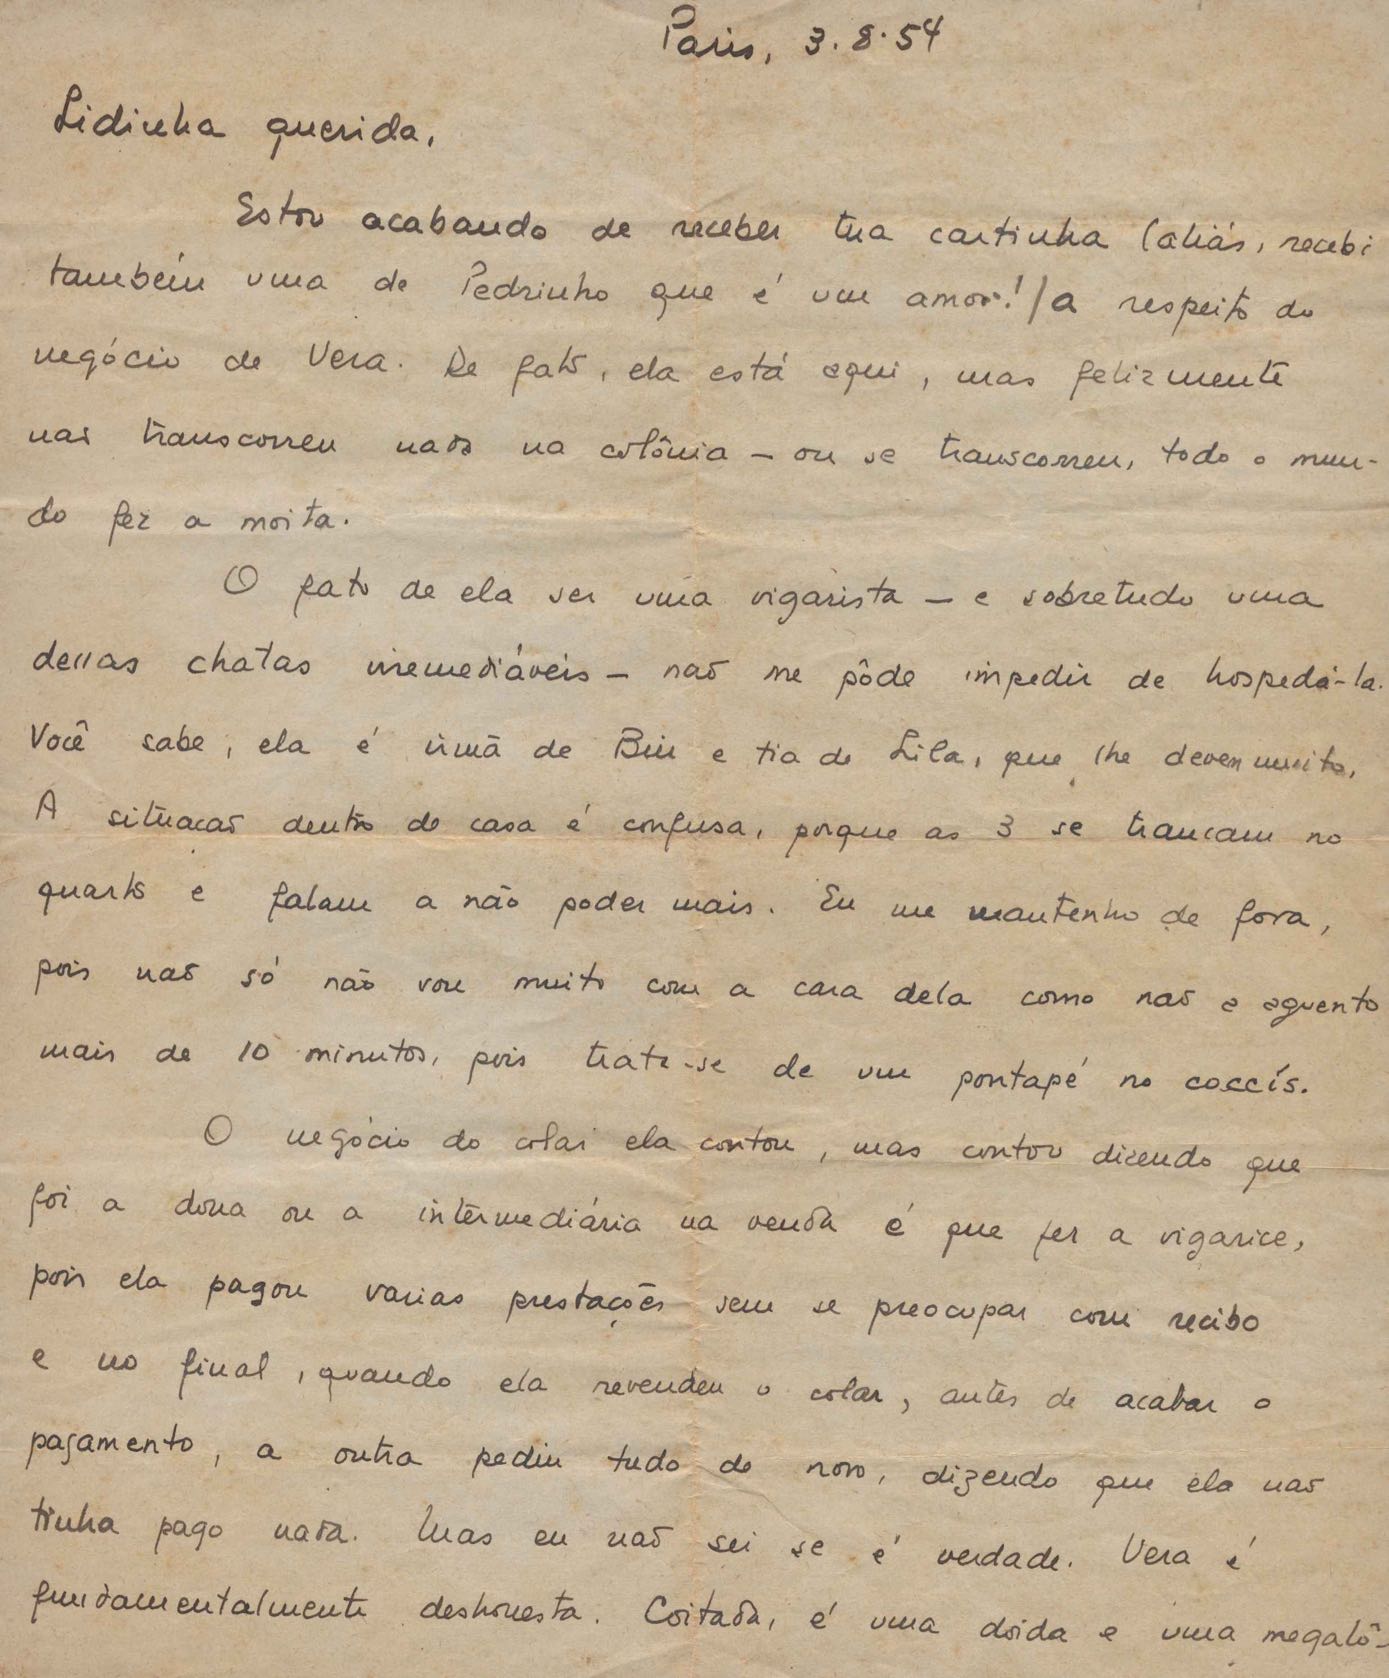 Paris, 3.8.54
Lidinha querida,
Estou acabando de receber tua cartinha (aliás, recebi
também uma de Pedrinho que é um amor!) a respeito do
negócio de Vera. De fato, ela está aqui, mas felizmente
não transcorreu nada na colônia – ou se transcorreu, todo o mun-
do fez a moita.
O fato de ela ser uma vigarista – e sobretudo uma
dessas chatas irremediáveis – não me pôde impedir de hospedá-la.
Você sabe, ela é irmã de Biu e tia de Lila, que lhe devem muito.
A situacão dentro de casa é confusa, porque as 3 se trancam no
quarto e falam a não poder mais. Eu me mantenho de fora,
pois não só não vou muito com a cara dela como não a aguento
mais de 10 minutos, pois trata-se de um pontapé no coccís.
O negócio do colar ela contou, mas contou dizendo que
foi a dona ou a intermediária na venda é que fez a vigarice,
pois ela pagou varias prestações sem se preocupar com recibo
e no final, quando ela revendeu o colar, antes de acabar o
pagamento, a outra pediu tudo de novo, dizendo que ela não
tinha pago nada. Mas eu não sei se é verdade. Vera é
fundamentalmente deshonesta. Coitada, é uma doida e uma megalô-